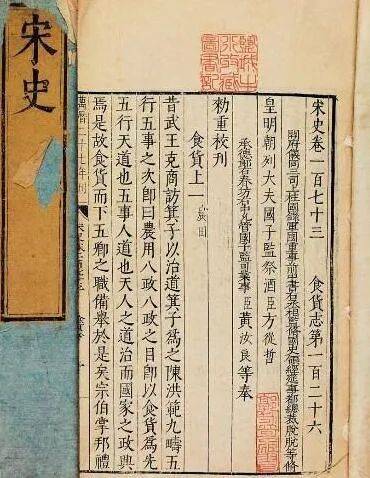 宋史
宋史卷一百七十三 食貨志第一百二十六
開府儀同三司上柱國錄軍國重事前中書右丞相監修國史領經筵事都總裁脫脫等修
皇明朝列大夫國子監祭酒臣方從哲
承德郎右春坊右中允管國子監司業事臣黃汝良等奉
勑重校刊
食貨上一 農田
昔武王克商訪箕子以治道箕子爲之陳洪範九疇五
行五事之次即曰農用八政八政之目即以食貨爲先
五行天道也五事人道也天人之道治而國家之政興
焉是故食貨而下五卿之職備舉於是矣宗伯掌邦禮
萬曆二十七年刊